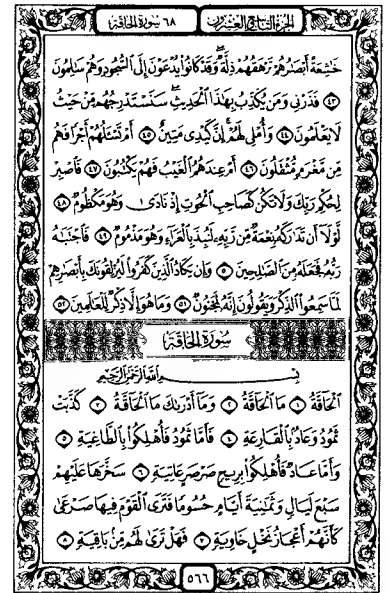 الجزء التاسع والعشرون ٦٨ سورة الحاقة
خَٰشِعَةً أَبْصَٰرُهُمْ تَرْهَقُهُمْ ذِلَّةٌ وَقَدْ كَانُوا۟ يُدْعَوْنَ إِلَى ٱلسُّجُودِ وَهُمْ سَٰلِمُونَ
٤٣ فَذَرْنِى وَمَن يُكَذِّبُ بِهَٰذَا ٱلْحَدِيثِ سَنَسْتَدْرِجُهُم مِّنْ حَيْثُ
لَا يَعْلَمُونَ ٤٤ وَأُمْلِى لَهُمْ إِنَّ كَيْدِى مَتِينٌ ٤٥ أَمْ تَسْـَٔلُهُمْ أَجْرًا فَهُم
مِّن مَّغْرَمٍ مُّثْقَلُونَ ٤٦ أَمْ عِندَهُمُ ٱلْغَيْبُ فَهُمْ يَكْتُبُونَ ٤٧ فَٱصْبِرْ
لِحُكْمِ رَبِّكَ وَلَا تَكُن كَصَاحِبِ ٱلْحُوتِ إِذْ نَادَىٰ وَهُوَ مَكْظُومٌ ٤٨
لَّوْلَآ أَن تَدَٰرَكَهُۥ نِعْمَةٌ مِّن رَّبِّهِۦ لَنُبِذَ بِٱلْعَرَآءِ وَهُوَ مَذْمُومٌ ٤٩ فَٱجْتَبَٰهُ
رَبُّهُۥ فَجَعَلَهُۥ مِنَ ٱلصَّٰلِحِينَ ٥٠ وَإِن يَكَادُ ٱلَّذِينَ كَفَرُوا۟ لَيُزْلِقُونَكَ بِأَبْصَٰرِهِمْ
لَمَّا سَمِعُوا۟ ٱلذِّكْرَ وَيَقُولُونَ إِنَّهُۥ لَمَجْنُونٌ ٥١ وَمَا هُوَ إِلَّا ذِكْرٌ لِّلْعَٰلَمِينَ ٥٢
سُورَةُ الحَاقَّةِ
بِسْمِ ٱللَّهِ ٱلرَّحْمَٰنِ ٱلرَّحِيمِ
ٱلْحَآقَّةُ ١ مَا ٱلْحَآقَّةُ ٢ وَمَآ أَدْرَىٰكَ مَا ٱلْحَآقَّةُ ٣ كَذَّبَتْ
ثَمُودُ وَعَادٌۢ بِٱلْقَارِعَةِ ٤ فَأَمَّا ثَمُودُ فَأُهْلِكُوا۟ بِٱلطَّاغِيَةِ ٥
وَأَمَّا عَادٌ فَأُهْلِكُوا۟ بِرِيحٍ صَرْصَرٍ عَاتِيَةٍ ٦ سَخَّرَهَا عَلَيْهِمْ
سَبْعَ لَيَالٍ وَثَمَٰنِيَةَ أَيَّامٍ حُسُومًا فَتَرَى ٱلْقَوْمَ فِيهَا صَرْعَىٰ
كَأَنَّهُمْ أَعْجَازُ نَخْلٍ خَاوِيَةٍ ٧ فَهَلْ تَرَىٰ لَهُم مِّنۢ بَاقِيَةٍ ٨
٥٦٦